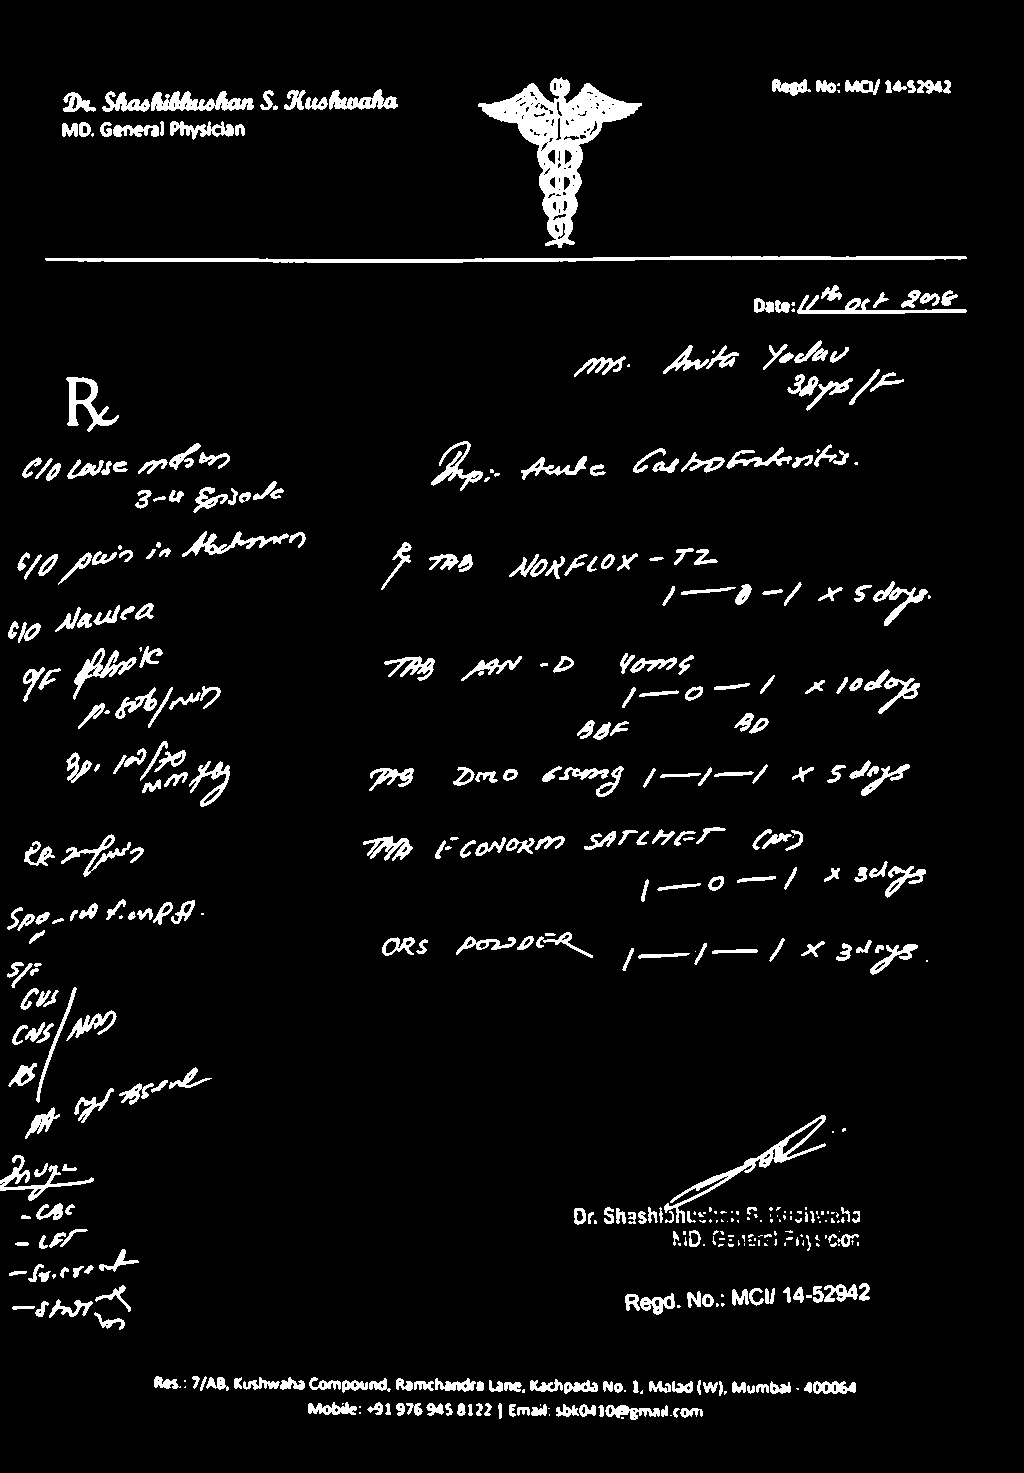 Dr. Shashibhushan S. Kushwaha
MD. General Physician
Regd. No: MCI/ 14-52942
Date: 11th Oct 2018
Ms. Anita Yadav
/F
Rx
C/O Loose motion
3-4 Episode
C/O pain in Abdomen
C/O Nausea
O/E
mmHg
S/E
CVS
CNS / NAD
RS
- CBC
- LFT
Imp:- Acute GastroEnteritis.
Rx TAB NORFLOX - TZ
1 — 0 — 1 x 5 days.
TAB PAN - D 40mg
1 — 0 — 1 x 10 days
BBF BD
TAB DOLO 650mg 1 — 1 — 1 x 5 days
ECONORM SATCHET
1 — 0 — 1 x 3 days
ORS POWDER 1 — 1 — 1 x 3 days.
Dr. Shashibhushan S. Kushwaha
MD. General Physician
Regd. No.: MCI/ 14-52942
Res.: 7/AB, Kushwaha Compound, Ramchandra Lane, Kachpada No. 1, Malad (W), Mumbai - 400064
Mobile: +91 976 945 8122 | Email: sbk0410@gmail.com